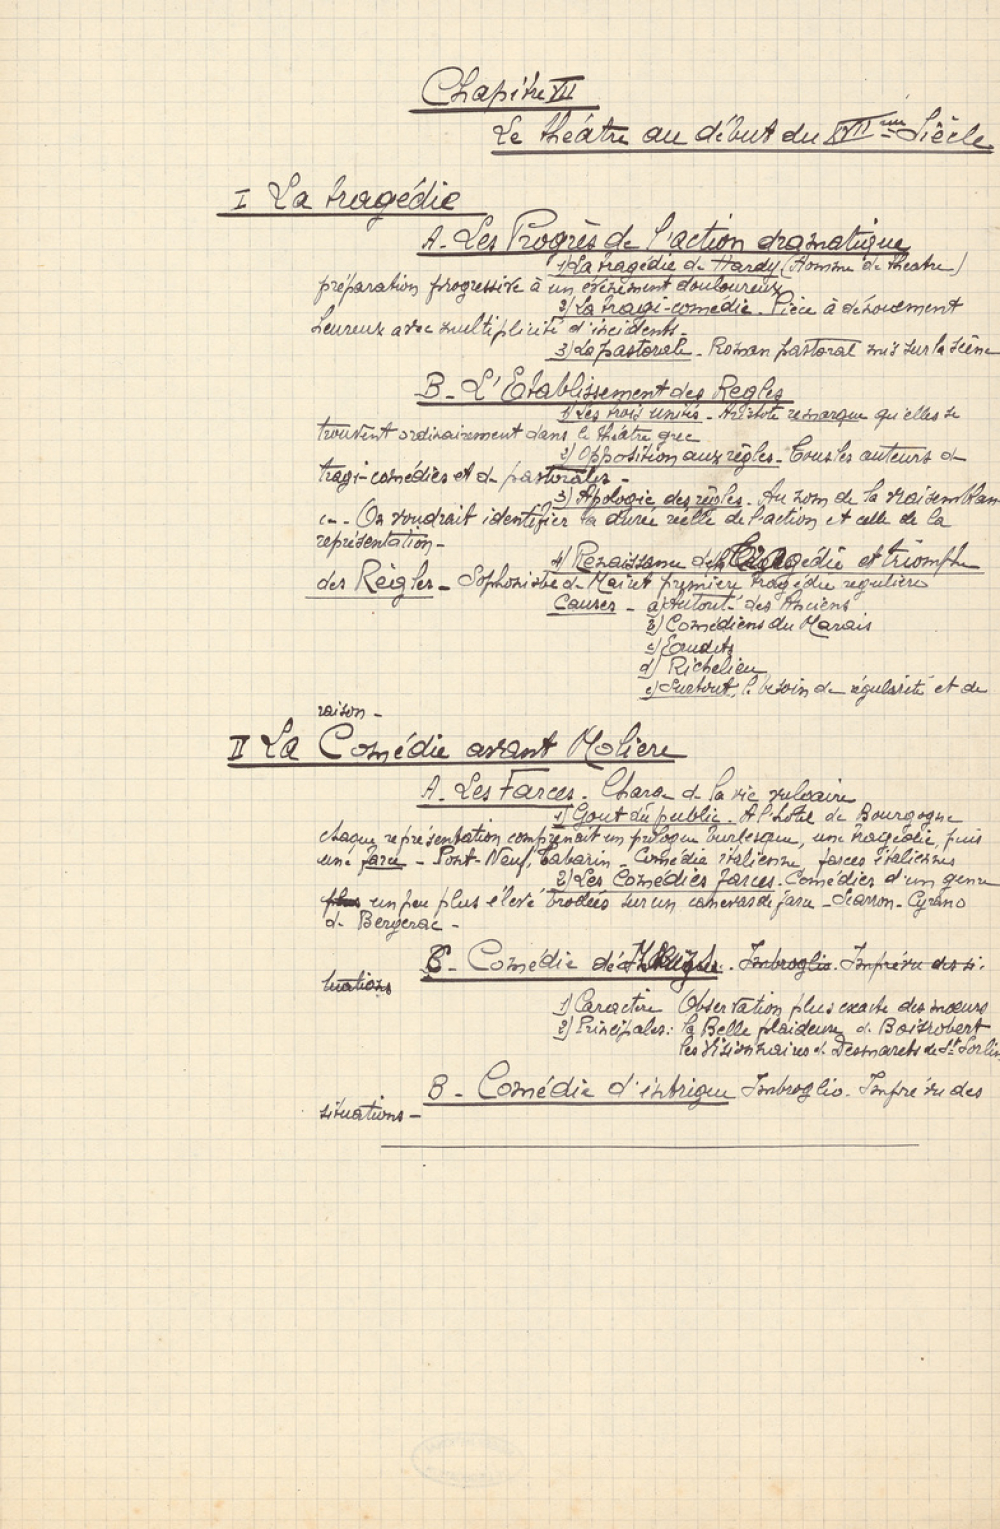 Chapitre VII
Le théâtre au début du XVIIème Siècle
I La tragédie
A. Les Progrès de l'action dramatique
1) La tragédie de Hardy (Homme de théatre)
préparation progressive à un événement douloureux
2) La tragi-comédie. Pièce à dénouement
heureux avec multiplicité d'incidents.
3) La pastorale. Roman pastoral mis sur la scène
B. L'Etablissement des Règles
1) Les trois unités. Aristote remarque qu'elles se
trouvent ordinairement dans le théâtre grec
2) Opposition aux règles. Tous les auteurs de
tragi-comédies et de pastorales.
3) Apologie des règles. Au nom de la vraisemblan
ce. On voudrait identifier la durée réelle de l'action et celle de la
représentation.
4) Renaissance de la Tragédie et triomphe
des Règles. Sophonisbe de Mairet première tragédie régulière
Causes - a) Autorité des Anciens
b) Comédiens du Marais
c) Erudits
d) Richelieu
e) Surtout, le besoin de régularité et de
raison -
II La Comédie avant Molière
A. Les Farces. Charge de la vie vulgaire
1) Gout du public. A l'hôtel de Bourgogne
chaque représentation comprenait un prologue burlesque, une tragédie, puis
une farce - Pont-Neuf, Tabarin - Comédie italienne, farces italiennes
2) Les Comédies farces. Comédies d'un genre
plus un peu plus élevé brodées sur un canevas de farce - Scarron - Cyrano
de Bergerac -
C. Comédie de . Imbroglio. Imprévu des si-
tuations
1) Caractère Observation plus exacte des mœurs
2) Principales: la Belle plaideuse de Boisrobert
les Visionnaires de Desmarets de St Sorlin
B. Comédie d'intrigue Imbroglio. Imprévu des
situations -